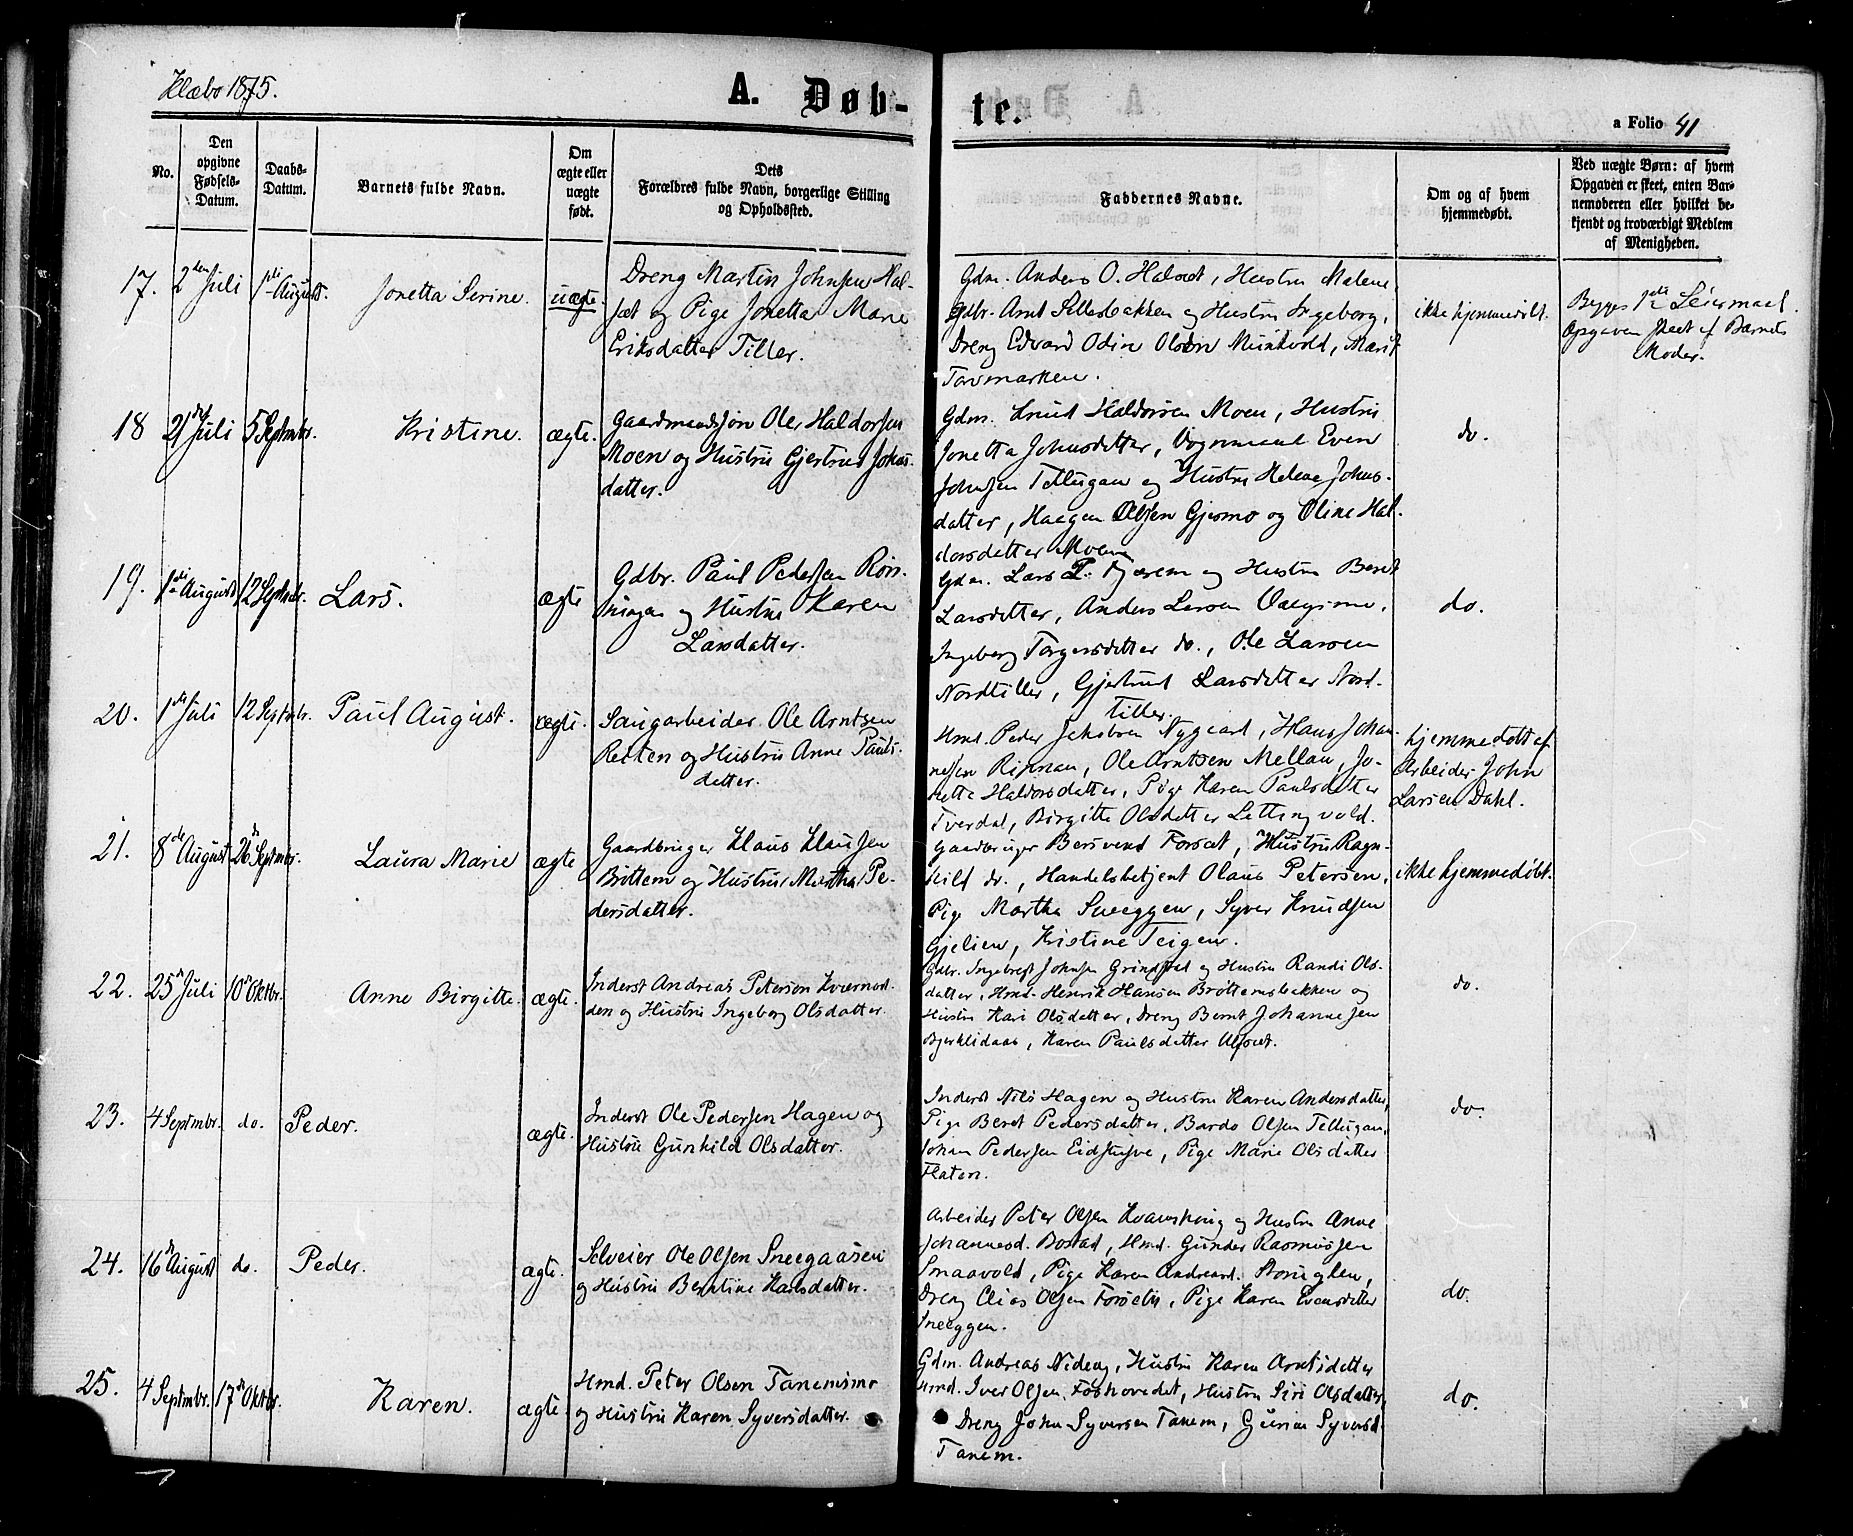 Klæbo 1875.
A. Døb-
te.
a Folio 41
No.
Den
opgivne
Fødsels-
Datum.
Daabs-
Datum.
Barnets fulde Navn.
Om
ægte eller
uægte
født.
Dets
Forældres fulde Navn, borgerlige Stilling
og Opholdssted.
Faddernes Navne.
Om og af hvem
hjemmedøbt.
Ved uægte Børn: af hvem
Opgaven er skeet, enten Bar-
nemoderen eller hvilket be-
kjendt og troværdigt Medlem
af Menigheden.
17. 2den Juli 1ste August. Jonetta Serine. uægte.
Dreng Martin Johnsen Hal-
set og Pige Jonetta Marie
Eriksdatter Tiller.
Gdm. Anders O. Halset, Hustru Malene,
Gdbr. Arnt Sellesbakken og Hustru Ingeborg,
Dreng Edvard Odin Olsen Munkvold, Marit
Torvmarken.
ikke hjemmedøbt.
Begges 1ste Leiermaal.
Opgaven skeet af Barnets
Moder.
18 21de Juli 5 Septmbr. Kristine. ægte.
Gaardmandssøn Ole Haldorsen
Moen og Hustru Gjertrud Johns-
datter.
Gdm. Knud Haldorsen Moen, Hustru
Jonetta Johnsdatter, Vognmand Even
Johnsen Tellugan og Hustru Helene Johns-
datter, Haagen Olsen Gjesmo og Oline Hal-
dorsdatter Moen
do.
19. 1ste August 12 Septmbr. Lars. ægte
Gdbr. Paul Pedersen Røn-
ningen og Hustru Karen
Larsdatter.
Gdm. Lars P. Tjærem og Hustru Beret
Larsdatter, Anders Larsen Vaegsmo,
Ingeborg Torgersdatter do., Ole Larsen
Nordtiller, Gjertrud Larsdatter Nord-
tiller.
do.
20. 1ste Juli 12 Septmbr. Paul August. ægte.
Saugarbeider Ole Arntsen
Reiten og Hustru Anne Pauls-
datter.
Hmd. Peder Jakobsen Nygaard, Hans Johan-
nesen Rinnan, Ole Arntsen Mellan, Jo-
netta Haldorsdatter, Pige Karen Paulsdatter
Tverdal, Birgitte Olsdatter Lettingvold.
hjemmedøbt af
Arbeider John
Larsen Dahl.
21. 8de August 26de Septmbr. Laura Marie ægte
Gaardbruger Klaus Klausen
Brøttem og Hustru Martha Pe-
dersdatter.
Gaardbruger Bersvend Forset, Hustru Ragn-
hild do., Handelsbetjent Olaus Petersen,
Pige Martha Sneeggen, Syver Knudsen
Gjelien, Kristine Teigen.
ikke hjemmedøbt.
22. 25de Juli 10de Oktbr. Anne Birgitte. ægte.
Inderst Andreas Petersen Kvernød-
den og Hustru Ingeborg Olsdatter.
Gdbr. Ingebregt Johnsen Grindstad og Hustru Randi Ols-
datter, Hmd. Henrik Hansen Brøttemsbakken og
Hustru Kari Olsdatter, Dreng Bernt Johannesen
Bjerklidaas, Karen Paulsdatter Ulset.
do.
23. 4 Septmbr. do. Peder. ægte.
Inderst Ole Pedersen Hagen og
Hustru Gunhild Olsdatter.
Inderst Nils Hagen og Hustru Karen Andersdatter,
Pige Beret Pedersdatter, Bardo Olsen Tellugan,
Johan Pedersen Eidstusve, Pige Marie Olsdatter
Flaten.
do.
24. 16de August do. Peder. ægte.
Selveier Ole Olsen Sneegaasen
og Hustru Berntine Karlsdatter.
Arbeider Peter Olsen Kvamshaug og Hustru Anne
Johannesd. Bostad, Hmd. Gunder Rasmussen
Smaavold, Pige Karen Andreasd.
Dreng Elias Olsen Forseth, Pige Karen Evensdatter
Sneeggen.
do.
25. 4 Septmbr. 17de Oktbr. Karen. ægte.
Hmd. Peter Olsen Tanemsmo
og Hustru Karen Syversdatter.
Gdm. Andreas Nideng, Hustru Karen Arntsdatter
Hmd. Iver Olsen Foshovedet, Hustru Siri Olsdatter,
Dreng John Syversen Tanem, Gurine Syversd.
Tanem.
do.